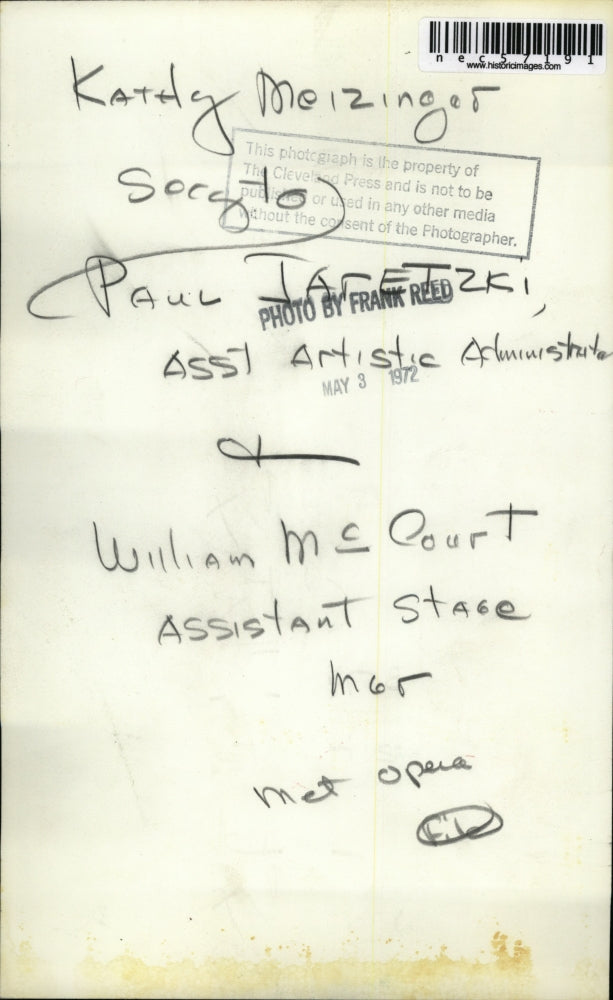 nec57191
www.historicimages.com
Kathy Meizinger
This photograph is the property of
The Cleveland Press and is not to be
published or used in any other media
without the consent of the Photographer.
Paul
PHOTO BY FRANK REED
Asst Artistic Administrator
MAY 3 1972
William McCourt
Assistant Stage
Mgr
Met Opera
File